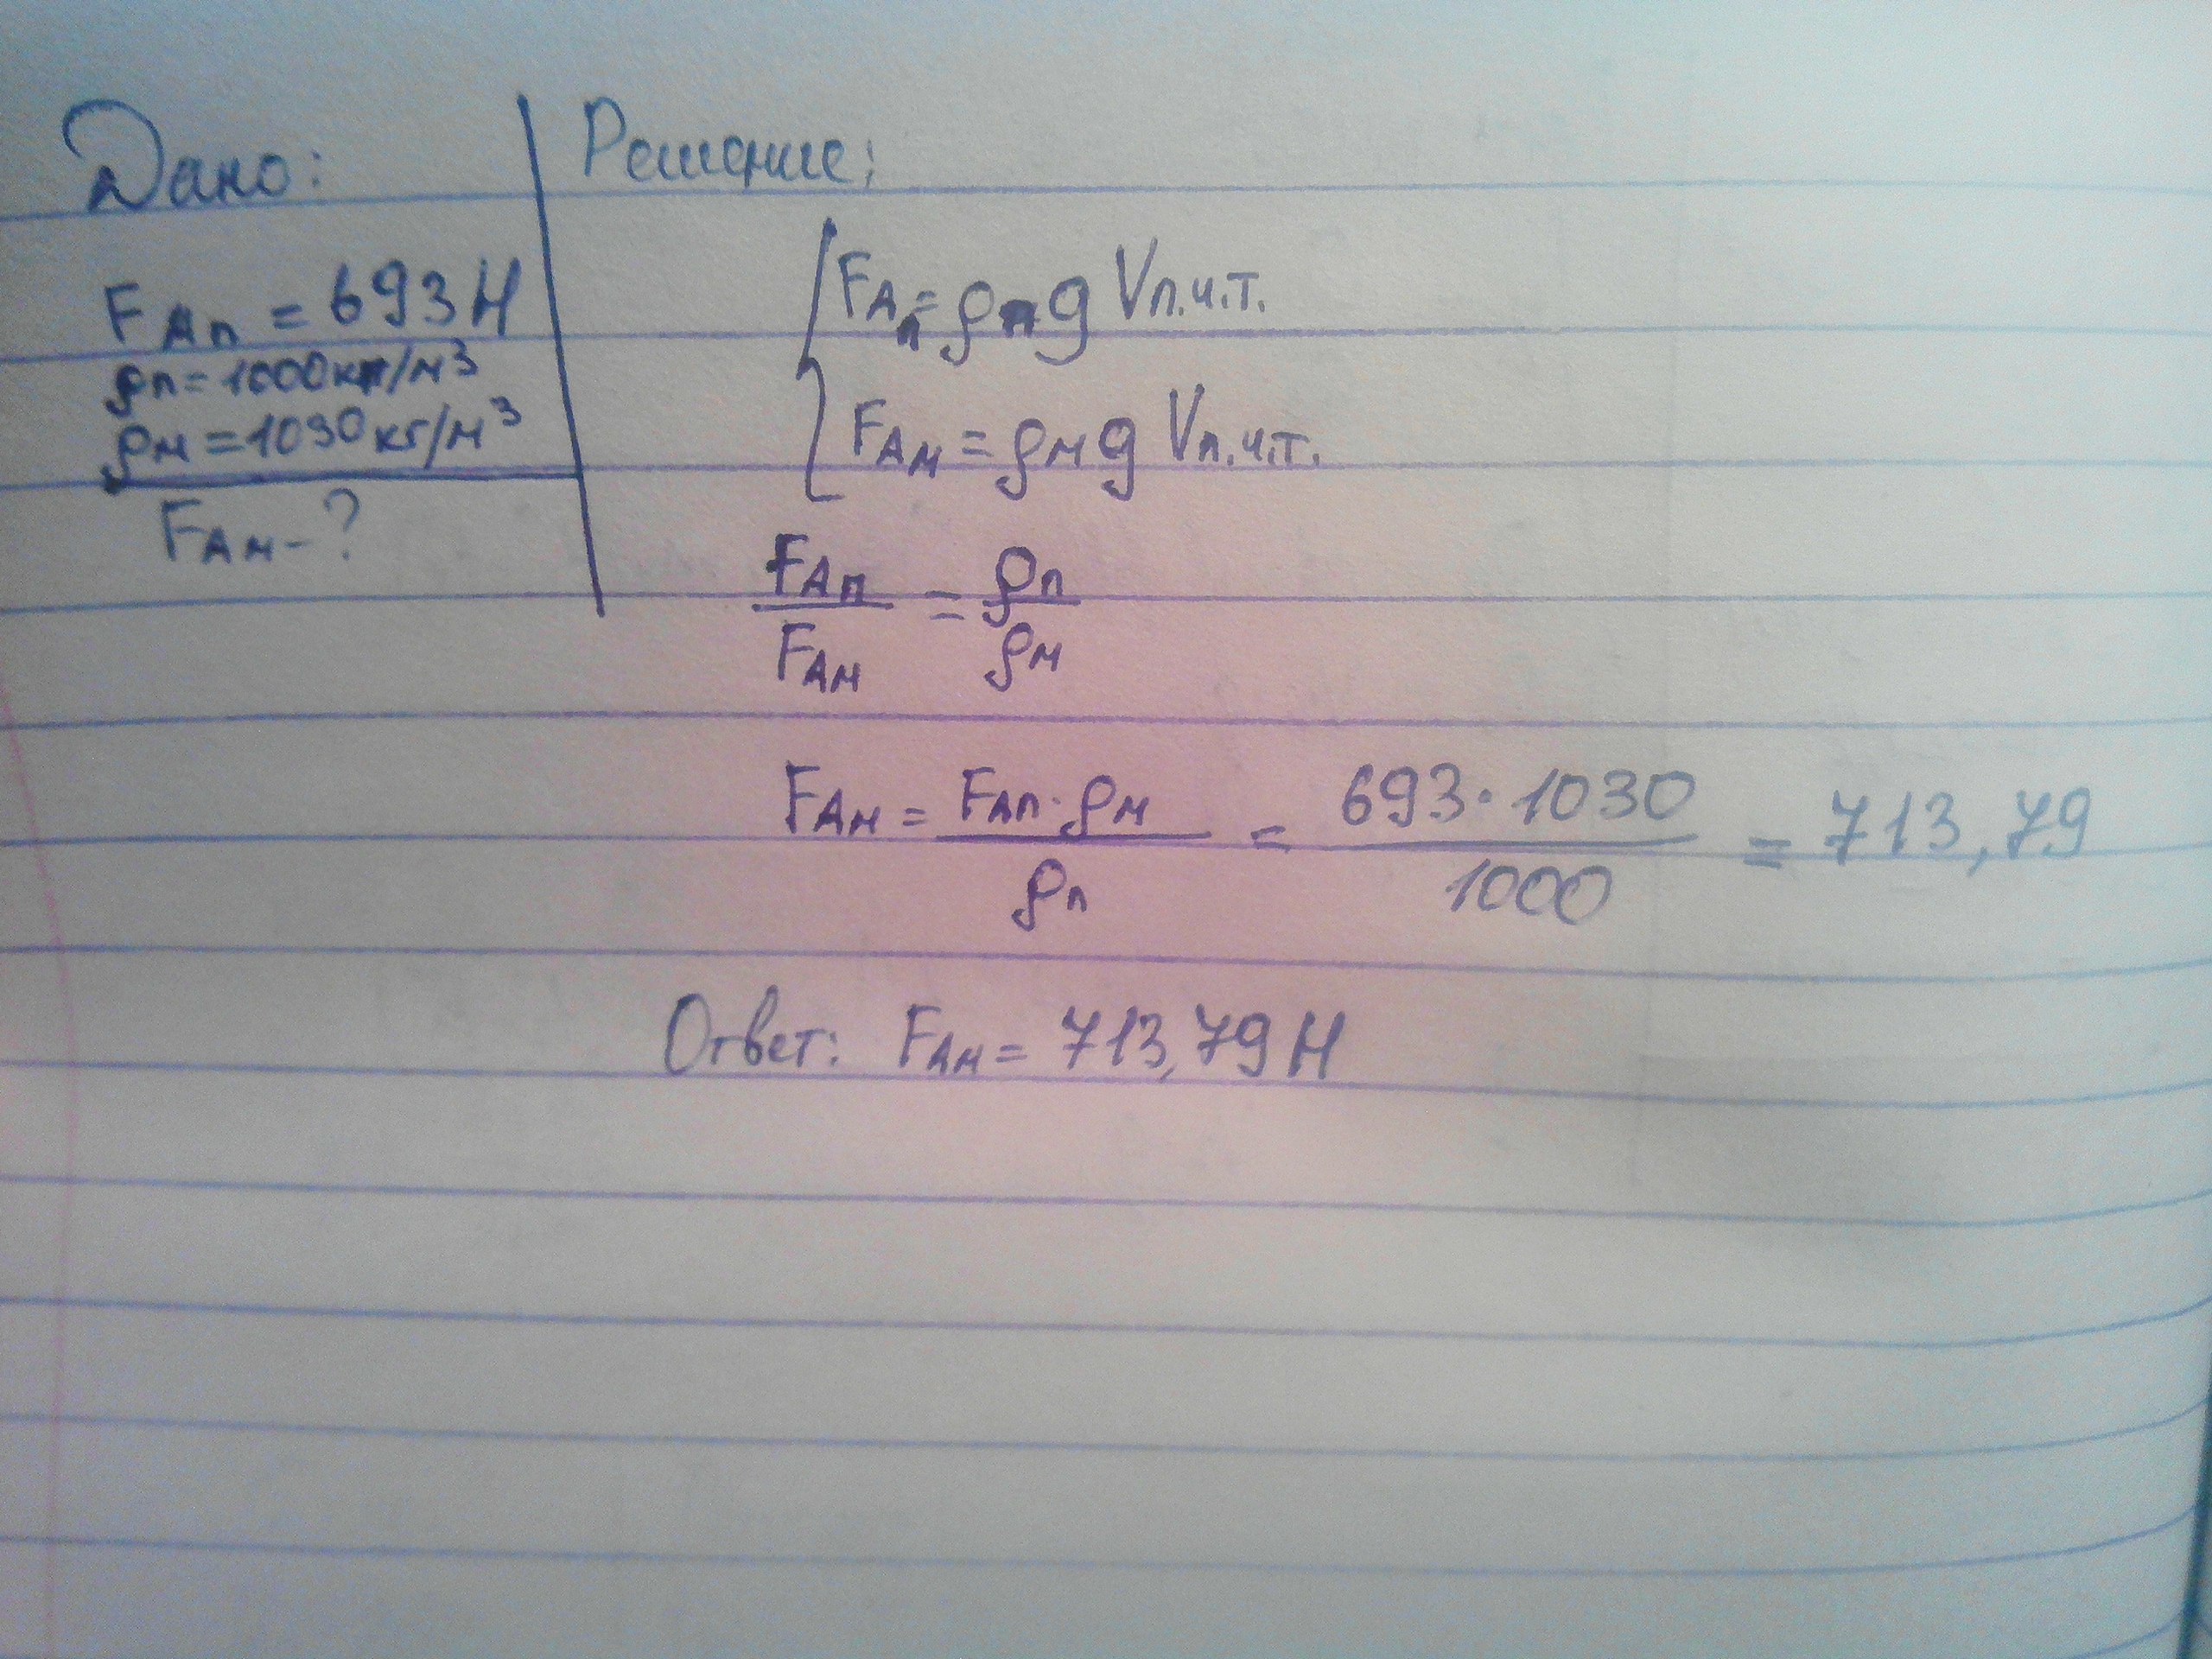 Дано:
F Ап = 693 Н
ρп = 1000 кг/м³
ρм = 1030 кг/м³
F Ам - ?
Решение:
F Ап = ρп g Vп.ч.т.
F Ам = ρм g Vп.ч.т.
F Ап / F Ам = ρп / ρм
F Ам = F Ап · ρм / ρп = 693 · 1030 / 1000 = 713,79
Ответ: F Ам = 713,79 Н